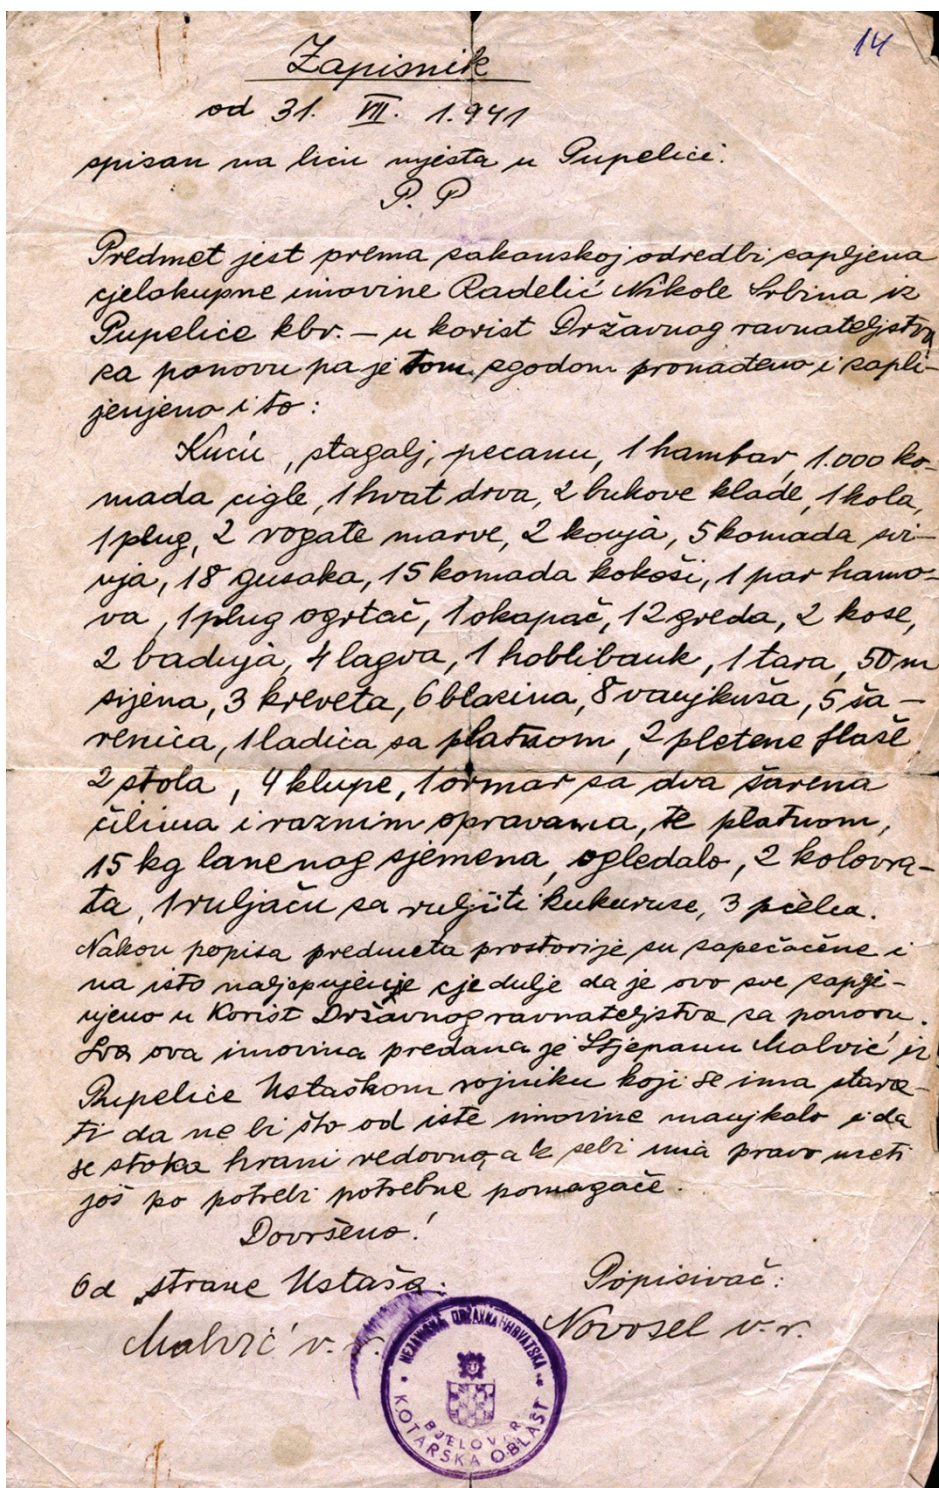 14
Zapisnik
od 31. VII. 1.941
spisan na licu mjesta u Pupelici.
P. P
Predmet jest prema zakonskoj odredbi zapljena
cjelokupne imovine Radelić Nikole Srbina iz
Pupelice kbr. — u korist Državnog ravnateljstva
za ponovu pa je tom zgodom pronađeno i zapli-
jenjeno i to:
Kuću, stagalj, pecanu, 1 hambar, 1.000 ko-
mada cigle, 1 hvat drva, 2 bukove klade, 1 kola,
1 plug, 2 rogate marve, 2 konja, 5 komada svi-
nja, 18 gusaka, 15 komada kokoši, 1 par hamo-
va, 1 plug ogrtač, 1 okapač, 12 greda, 2 kose,
2 badnja, 4 lagva, 1 hoblibank, 1 tara, 50 m
sijena, 3 kreveta, 6 blazina, 8 vanjkuša, 5 ša-
renica, 1 ladica sa platnom, 2 pletene flaše
2 stola, 4 klupe, 1 ormar sa dva šarena
ćilima i raznim opravama, te platnom,
15 kg lanenog sjemena, ogledalo, 2 kolovra-
ta, 1 ruljaču za ruljiti kukuruze, 3 pčelca.
Nakon popisa predmeta prostorije su zapečaćene i
na isto naljepnjenje cjedulje da je ovo sve zaplje-
njeno u korist Državnog ravnateljstva za ponovu.
Sva ova imovina predana je Stjepanu Malvić iz
Pupelice Ustaškom vojniku koji se ima stara-
ti da ne bi što od iste imovine manjkalo i da
se stoka hrani redovno, a k sebi ima pravo uzeti
još po potrebi potrebne pomagače.
Dovršeno!
Od strane Ustaša: Popisivač:
Malvić v. r. Novosel v. r.
NEZAVISNA DRŽAVA HRVATSKA
KOTARSKA OBLAST
BJELOVAR